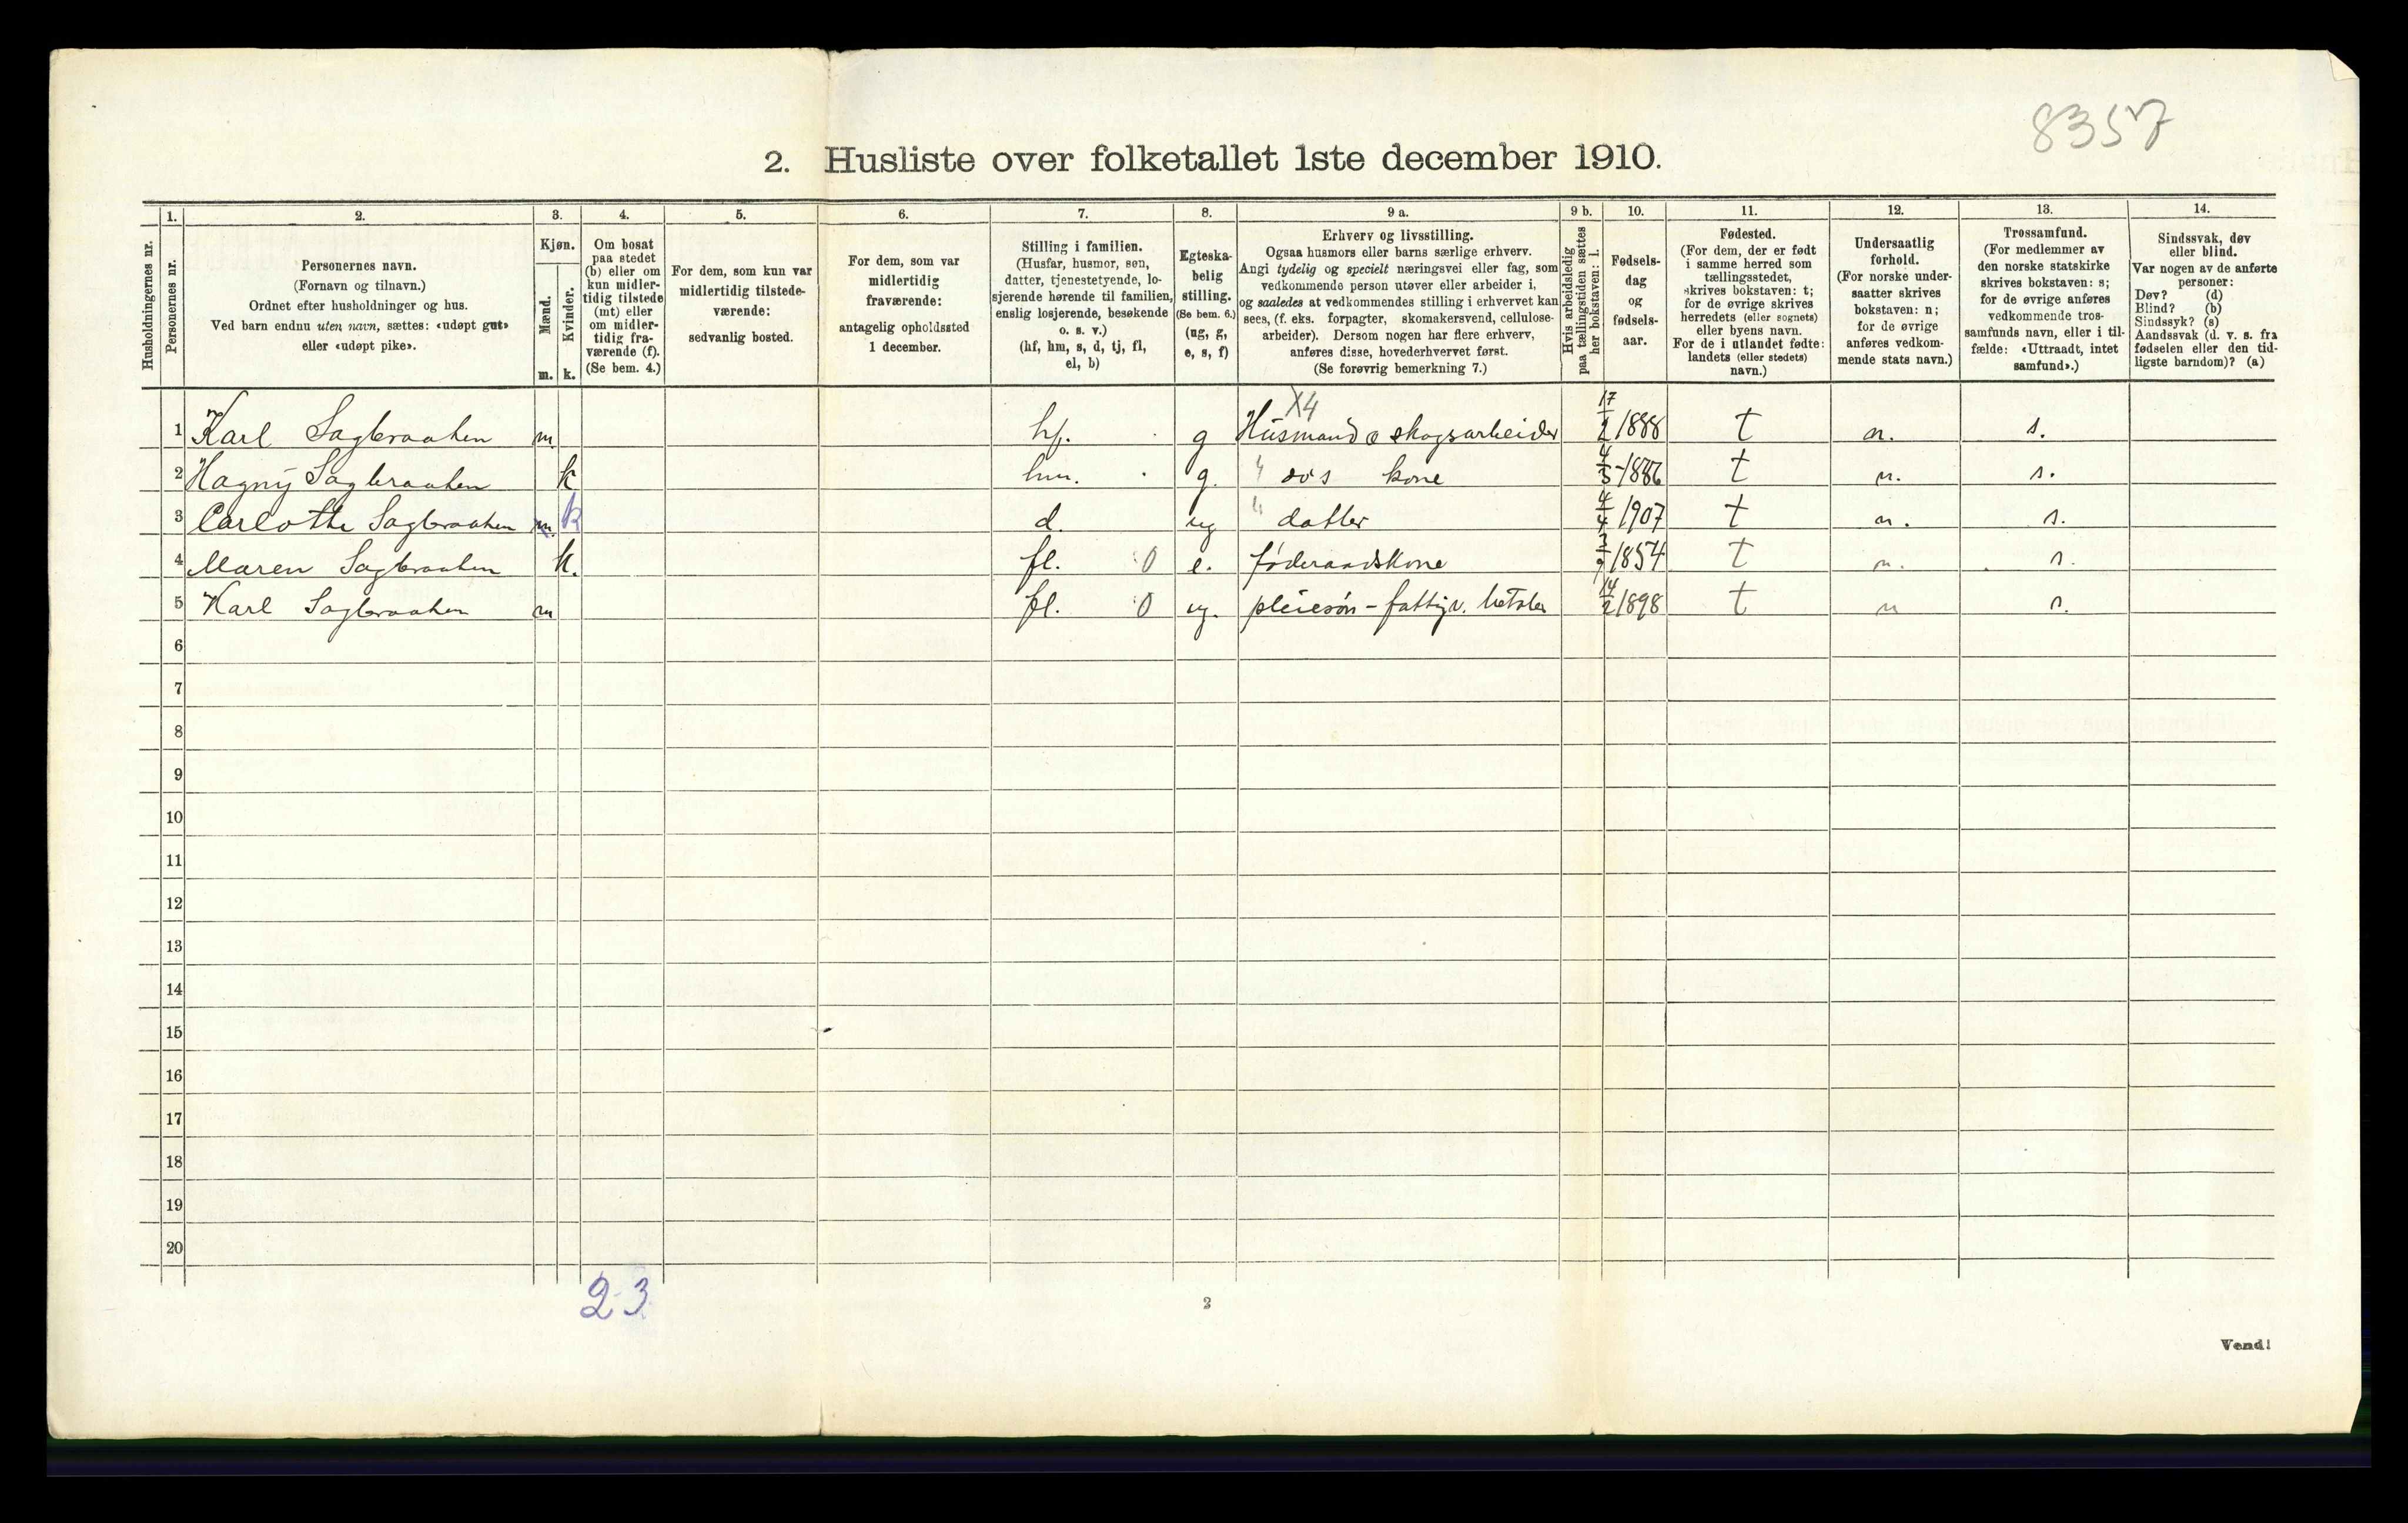 8357
2. Husliste over folketallet 1ste december 1910.
Husholdningernes nr.
1.
Personernes nr.
2.
Personernes navn.
(Fornavn og tilnavn.)
Ordnet efter husholdninger og hus.
Ved barn endnu uten navn, sættes: «udøpt gut»
eller «udøpt pike».
3.
Kjøn.
Mænd.
Kvinder.
m. k.
4.
Om bosat
paa stedet
(b) eller om
kun midler-
tidig tilstede
(mt) eller
om midler-
tidig fra-
værende (f).
(Se bem. 4.)
5.
For dem, som kun var
midlertidig tilstede-
værende:
sedvanlig bosted.
6.
For dem, som var
midlertidig
fraværende:
antagelig opholdssted
1 december.
7.
Stilling i familien.
(Husfar, husmor, søn,
datter, tjenestetyende, lo-
sjerende hørende til familien,
enslig losjerende, besøkende
o. s. v.)
(hf, hm, s, d, tj, fl,
el, b)
8.
Egteska-
belig
stilling.
(Se bem. 6.)
(ug, g,
e, s, f)
9 a.
Erhverv og livsstilling.
Ogsaa husmors eller barns særlige erhverv.
Angi tydelig og specielt næringsvei eller fag, som
vedkommende person utøver eller arbeider i,
og saaledes at vedkommendes stilling i erhvervet kan
sees, (f. eks. forpagter, skomakersvend, cellulose-
arbeider). Dersom nogen har flere erhverv,
anføres disse, hovederhvervet først.
(Se forøvrig bemerkning 7.)
9 b.
Hvis arbeidsledig
paa tællingstiden sættes
her bokstaven: l.
10.
Fødsels-
dag
og
fødsels-
aar.
11.
Fødested.
(For dem, der er født
i samme herred som
tællingsstedet,
skrives bokstaven: t;
for de øvrige skrives
herredets (eller sognets)
eller byens navn.
For de i utlandet fødte:
landets (eller stedets)
navn.)
12.
Undersaatlig
forhold.
(For norske under-
saatter skrives
bokstaven: n;
for de øvrige
anføres vedkom-
mende stats navn.)
13.
Trossamfund.
(For medlemmer av
den norske statskirke
skrives bokstaven: s;
for de øvrige anføres
vedkommende tros-
samfunds navn, eller i til-
fælde: «Uttraadt, intet
samfund».)
14.
Sindssvak, døv
eller blind.
Var nogen av de anførte
personer:
Døv? (d)
Blind? (b)
Sindssyk? (s)
Aandssvak (d. v. s. fra
fødselen eller den tid-
ligste barndom)? (a)
X4
1 Karl Sagbraaten m hf. g Husmand o skogsarbeider 17/2 1888 t n. s.
2 Hagny Sagbraaten k hm. g. 4 do's kone 4/3-1886 t n. s.
3 Carlotte Sagbraaten m. k d. ug 4 datter 4/4 1907 t n. s.
4 Maren Sagbraaten k. fl. 0 e. føderaadskone 3/9 1854 t n. s.
5 Karl Sagbraaten m fl. 0 ug. pleiesøn - fattigv. betaler 14/2 1898 t n s.
6
7
8
9
10
11
12
13
14
15
16
17
18
19
20
2-3
2
Vend!